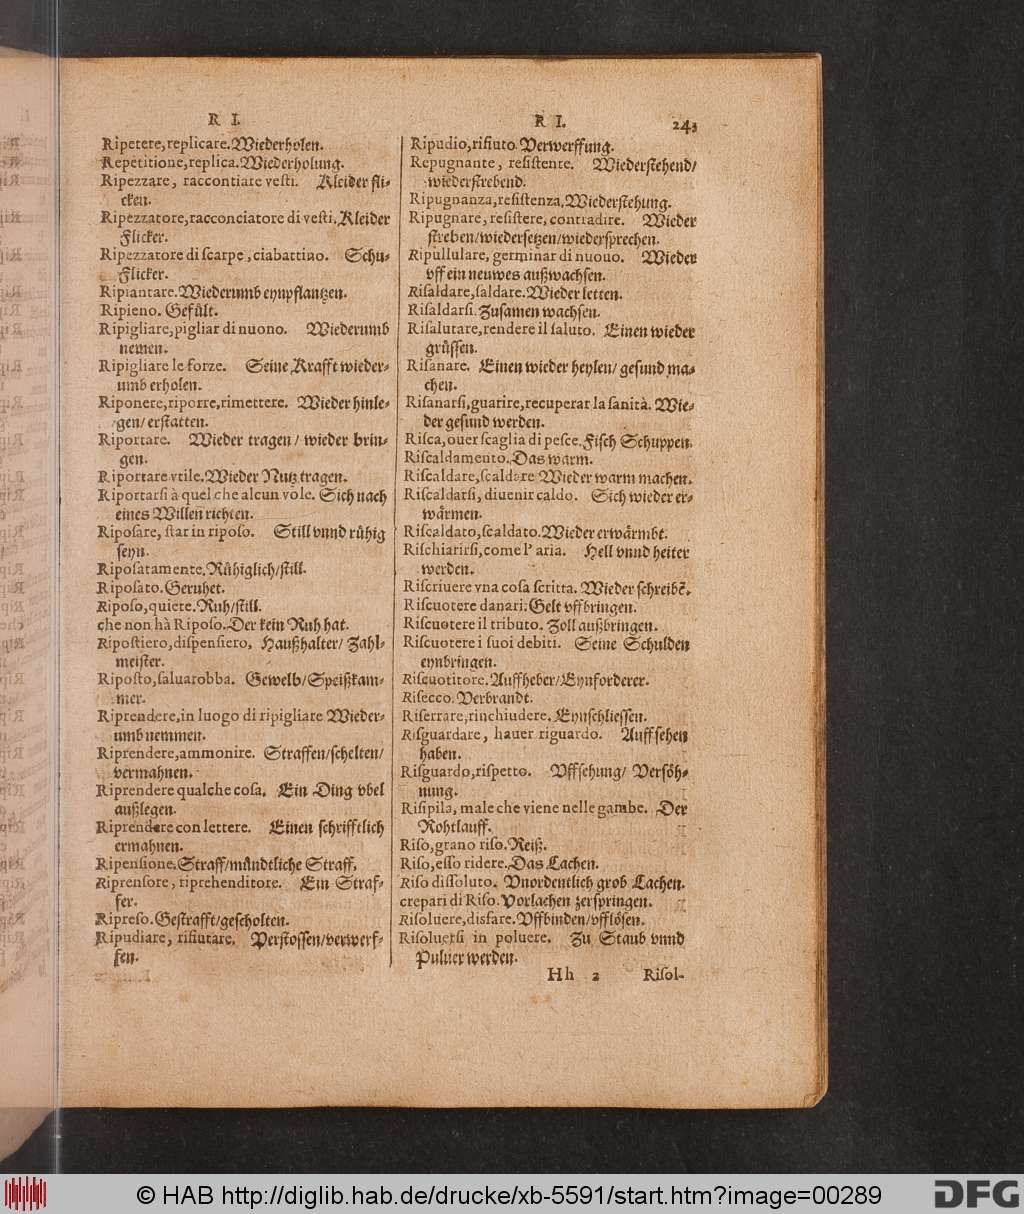 R I.
Ripetere, replicare. Wiederholen.
Repetitione, replica. Wiederholung.
Ripezzare, raccontiare vesti. Kleider fli-
cken.
Ripezzatore, racconciatore di vesti. Kleider
Flicker.
Ripezzatore di scarpe, ciabattino. Schu-
Flicker.
Ripiantare. Wiederumb eynpflantzen.
Ripieno. Gefült.
Ripigliare, pigliar di nuono. Wiederumb
nemen.
Ripigliare le forze. Seine Krafft wieder-
umb erholen.
Riponere, riporre, rimettere. Wieder hinle-
gen/ erstatten.
Riportare. Wieder tragen/ wieder brin-
gen.
Riportare vtile. Wieder Nutz tragen.
Riportarsi à quel che alcun vole. Sich nach
eines Willen richten.
Riposare, star in riposo. Still vnnd rühig
seyn.
Riposatamente. Rühiglich/still.
Riposato. Geruhet.
Riposo, quiete. Ruh/still.
che non hà Riposo. Der kein Ruh hat.
Ripostiero, dispensiero. Haußhalter/ Zahl-
meister.
Riposto, saluarobba. Gewelb/Speißkam-
mer.
Riprendere, in luogo di ripigliare Wieder-
umb nemmen.
Riprendere, ammonire. Straffen/schelten/
vermahnen.
Riprendere qualche cosa. Ein Ding vbel
außlegen.
Riprendere con lettere. Einen schrifftlich
ermahnen.
Ripensione. Straff/mündtliche Straff.
Riprensore, riprehenditore. Ein Straf-
fer.
Ripreso. Gestrafft/gescholten.
Ripudiare, rifiutare. Verstossen/verwerf-
fen.
R I. 243
Ripudio, rifiuto. Verwerffung.
Repugnante, resistente. Wiederstehend/
wiederstrebend.
Ripugnanza, resistenza. Wiederstehung.
Ripugnare, resistere, contradire. Wieder
streben/wiedersetzen/wiedersprechen.
Ripullulare, germinar di nuouo. Wieder
vff ein neuwes außwachsen.
Risaldare, saldare. Wieder letten.
Risaldarsi. Zusamen wachsen.
Risalutare, rendere il saluto. Einen wieder
grüssen.
Risanare. Einen wieder heylen/ gesund ma-
chen.
Risanarsi, guarire, recuperar la sanità. Wie-
der gesund werden.
Risca, ouer scaglia di pesce. Fisch Schuppen.
Riscaldamento. Das warm.
Riscaldare, scaldare Wieder warm machen.
Riscaldarsi, diuenir caldo. Sich wieder er-
wärmen.
Riscaldato, scaldato. Wieder erwärmbt.
Rischiarirsi, come l' aria. Hell vnnd heiter
werden.
Riscriuere vna cosa scritta. Wieder schreibē.
Riscuotere danari. Gelt vffbringen.
Riscuotere il tributo. Zoll außbringen.
Riscuotere i suoi debiti. Seine Schulden
eynbringen.
Riscuotitore. Auffheber/Eynforderer.
Risecco. Verbrandt.
Riserrare, rinchiudere. Eynschliessen.
Risguardare, hauer riguardo. Auff sehen
haben.
Risguardo, rispetto. Vffsehung/ Versöh-
nung.
Risipila, male che viene nelle gambe. Der
Rohtlauff.
Riso, grano riso. Reiß.
Riso, esso ridere. Das Lachen.
Riso dissoluto. Vnordentlich grob Lachen.
crepari di Riso. Vorlachen zerspringen.
Risoluere, disfare. Vffbinden/vfflösen.
Risoluersi in poluere. Zu Staub vnnd
Puluer werden.
Hh 2 Risol-
© HAB http://diglib.hab.de/drucke/xb-5591/start.htm?image=00289
DFG